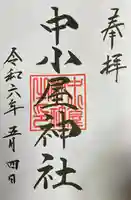 奉拝
中小屋神社
令和六年五月四日